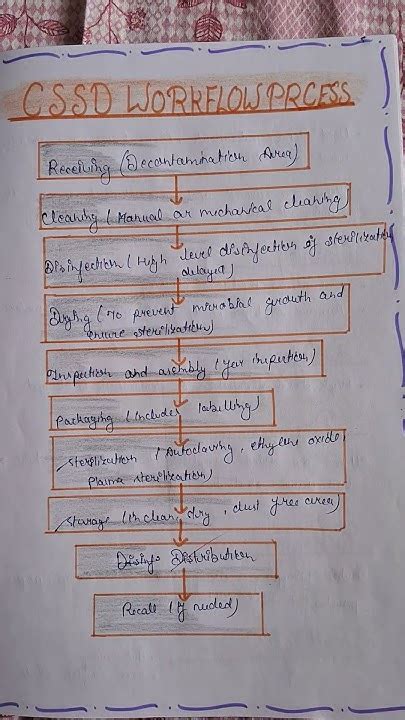 CSSD WORKFLOW PRCESS
Receiving (Decontamination Area)
Cleaning (Manual or mechanical cleaning)
Disinfection (High level disinfection if sterilization
delayed)
Drying (To prevent microbial growth and
ensure sterilization)
Inspection and assembly (
inspection)
Packaging (includes labelling)
Sterilization (Autoclaving, ethylene oxide,
plasma sterilization)
Storage (in clean, dry, dust free area)
Disinfo Distribution
Recall (If needed)